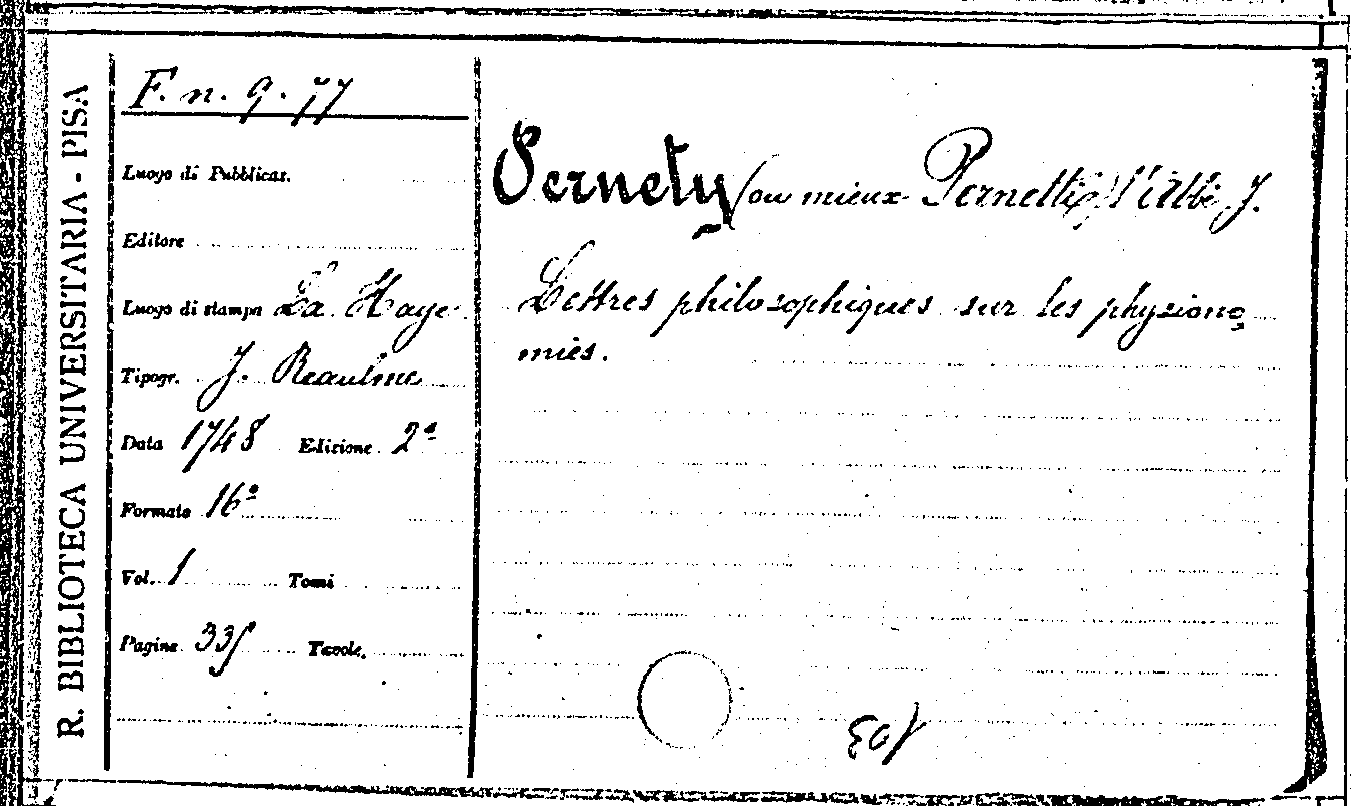 R. BIBLIOTECA UNIVERSITARIA - PISA
F. n. 9. 77
Luogo di Pubblicaz.
Editore
Luogo di stampa La Haye
Tipogr. J. Neaulme
Data 1748 Edizione 2ª
Formato 16°
Vol. 1 Tomi
Pagine 335 Tavole.
Pernety (ou mieux Pernetti) l'Abbé J.
Lettres philosophiques sur les physiono
mies.